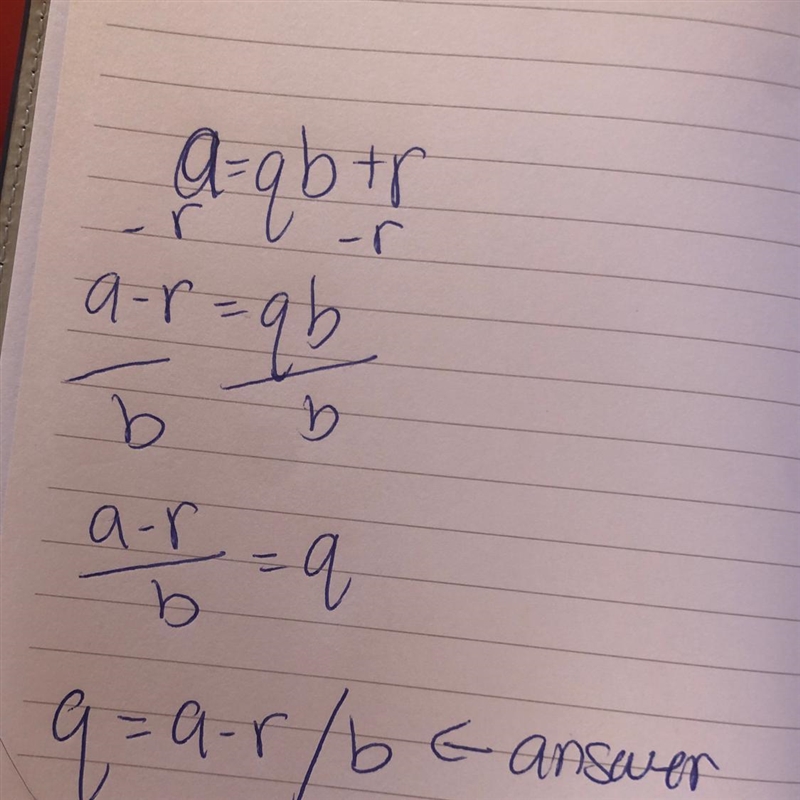 a=qb+r
-r -r
a-r=qb
b b
a-r
b =q
q=a-r/b ← answer